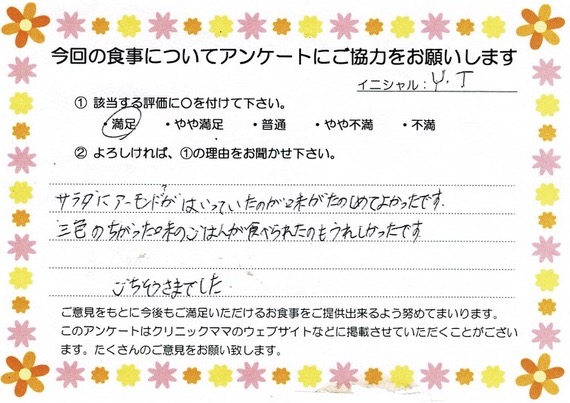 今回の食事についてアンケートにご協力をお願いします
イニシャル：Y.T
① 該当する評価に〇を付けて下さい。
・満足 ・やや満足 ・普通 ・やや不満 ・不満
② よろしければ、①の理由をお聞かせ下さい。
サラダにアーモンド?がはいっていたのが味がたのしめてよかったです。
三色のちがった味のごはんが食べられたのもうれしかったです
ごちそうさまでした
ご意見をもとに今後もご満足いただけるお食事をご提供出来るよう努めてまいります。
このアンケートはクリニックママのウェブサイトなどに掲載させていただくことがござい
ます。たくさんのご意見をお願い致します。